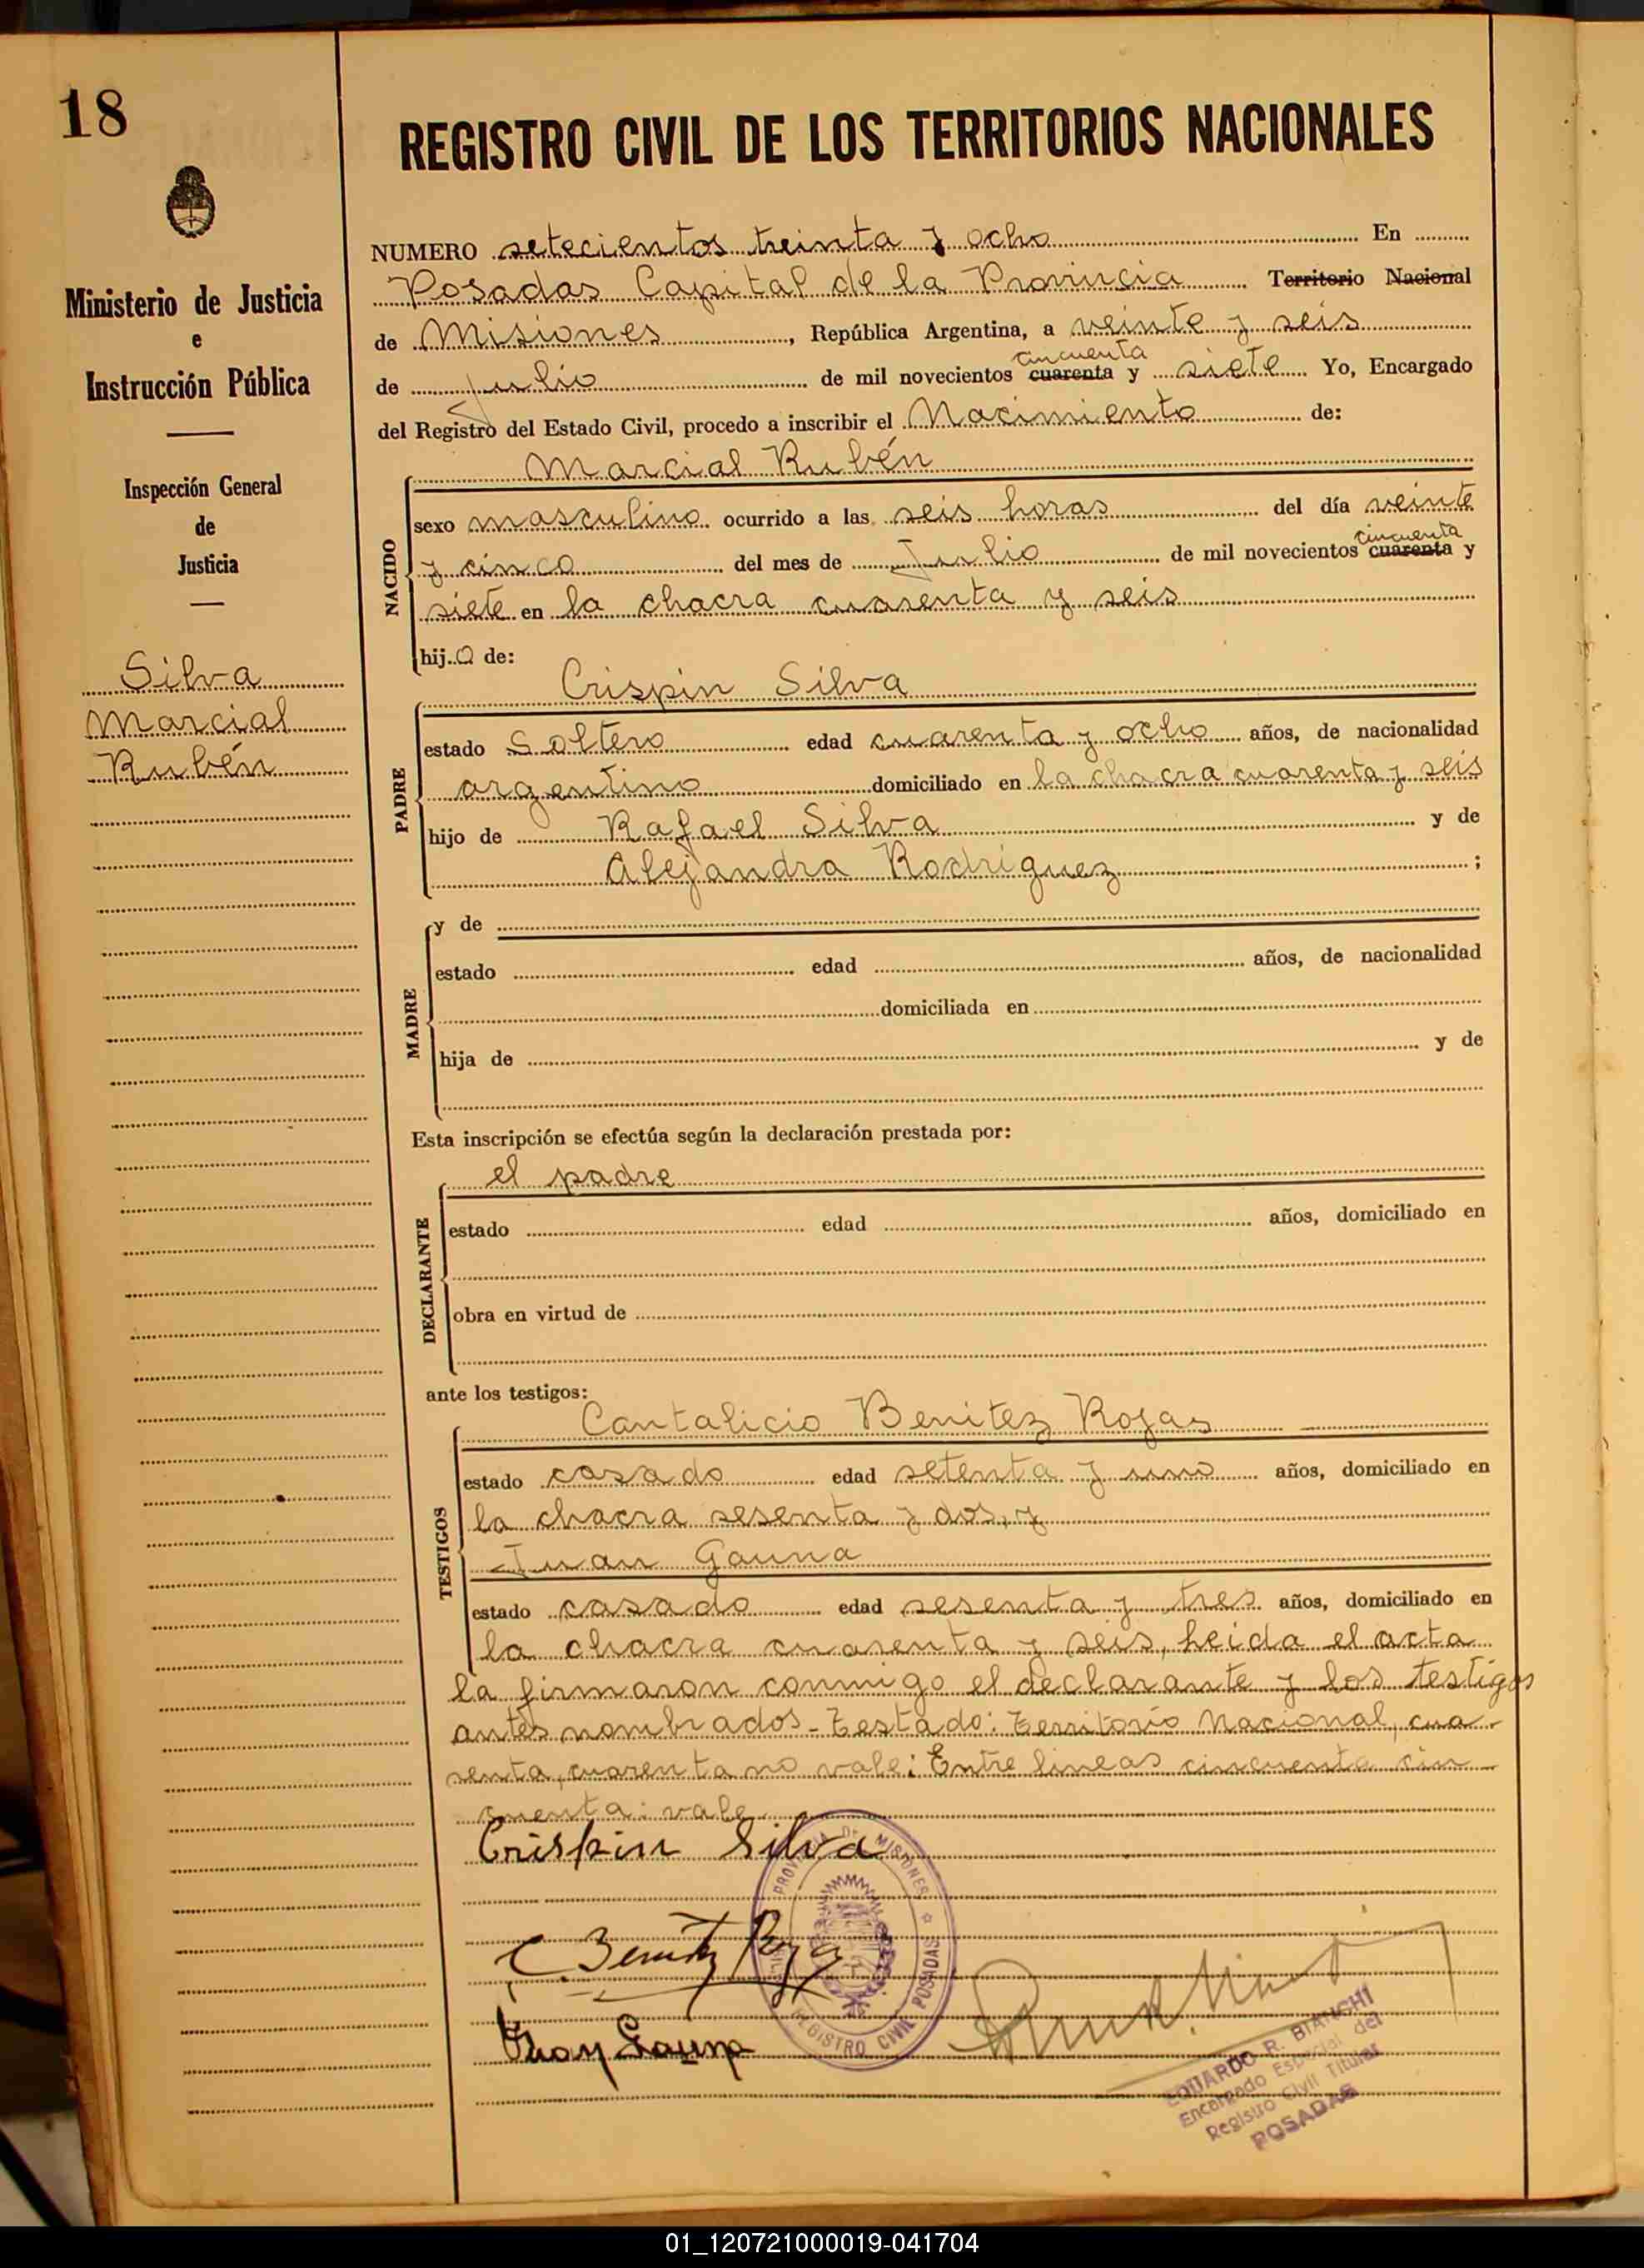 18
Ministerio de Justicia
e
Instrucción Pública
Inspección General
de
Justicia
Silva
Marcial
Rubén
REGISTRO CIVIL DE LOS TERRITORIOS NACIONALES
NUMERO setecientos treinta y ocho En
Posadas Capital de la Provincia Territorio Nacional
de Misiones, República Argentina, a veinte y seis
cincuenta
de Julio de mil novecientos cuarenta y siete Yo, Encargado
del Registro del Estado Civil, procedo a inscribir el Nacimiento de:
Marcial Rubén
NACIDO
sexo masculino ocurrido a las seis horas del día veinte
cincuenta
y cinco del mes de Julio de mil novecientos cuarenta y
siete en la chacra cuarenta y seis
hijo de:
Crispin Silva
PADRE
estado Soltero edad cuarenta y ocho años, de nacionalidad
argentino domiciliado en la chacra cuarenta y seis
hijo de Rafael Silva y de
Alejandra Rodriguez ;
MADRE
y de
estado edad años, de nacionalidad
domiciliada en
hija de y de
Esta inscripción se efectúa según la declaración prestada por:
el padre
DECLARANTE
estado edad años, domiciliado en
obra en virtud de
ante los testigos:
Cantalicio Benitez Rojas
TESTIGOS
estado casado edad setenta y uno años, domiciliado en
la chacra sesenta y dos, y
Juan Gauna
estado casado edad sesenta y tres años, domiciliado en
la chacra cuarenta y seis, leida el acta
la firmaron conmigo el declarante y los testigos
antes nombrados - Testado: Territorio Nacional, cua-
renta, cuarenta no vale: Entre lineas cincuenta cin
cuenta: vale
Crispin Silva
C. Benitez Rojas
Juan Gauna
PROVINCIA DE MISIONES
REGISTRO CIVIL POSADAS
EDUARDO R. BIANCHI
Encargado Especial del
Registro Civil Titular
POSADAS
01_120721000019-041704